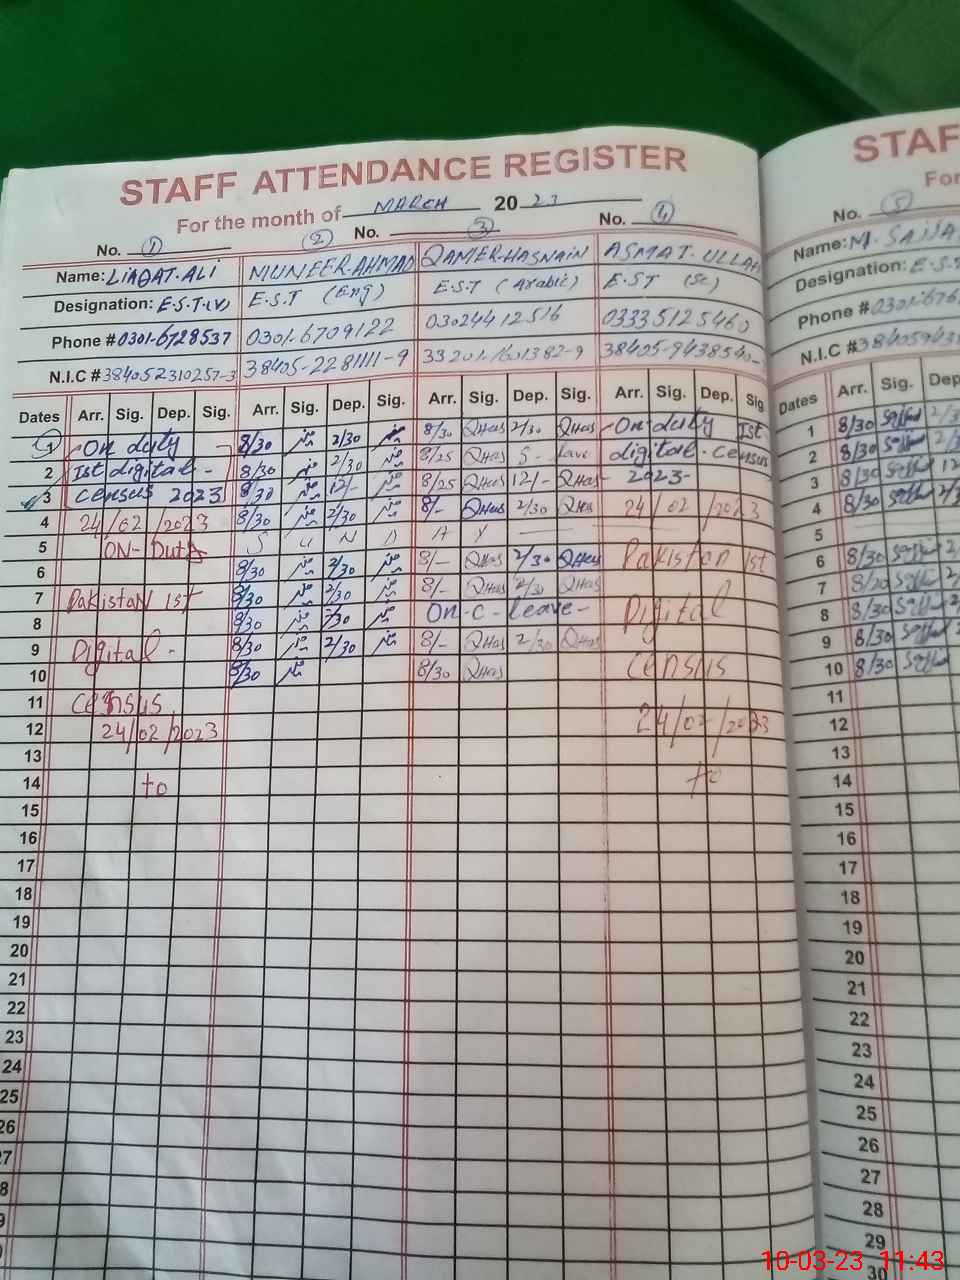 STAFF ATTENDANCE REGISTER
For the month of MARCH 2023
No. 1 2 No. 3 No. 4
Name: LIAQAT-ALI MUNEER-AHMAD QAMER-HASNAIN ASMAT-ULLAH
Designation: E.S.T.(V) E.S.T (Eng) E.S.T (Arabic) E.ST (Sc)
Phone # 0301-6728537 0301-6709122 03024412516 03335125460
N.I.C # 384052310257-3 38405-2281111-9 33201-1601382-9
Dates Arr. Sig. Dep. Sig. Arr. Sig. Dep. Sig. Arr. Sig. Dep. Sig. Arr. Sig. Dep. Sig.
1 On duty 8/30 2/30 8/30 QHas 2/30 QHas On duty Ist
2 Ist digital - 8/30 2/30 8/25 QHas S- Leave digital-census
3 census 2023 8/30 12/- 8/25 QHas 12/- QHas 2023-
4 24/02/2023 8/30 2/30 8/- QHas 2/30 QHas 24/02/2023
5 ON-Duty S U N D A Y
6 8/30 2/30 8/- QHas 2/30 QHas Pakistan Ist
7 Pakistan ist 8/30 2/30 8/- QHas 2/30 QHas
8 8/30 2/30 On-C-Leave- Digital
9 Digital - 8/30 2/30 8/- QHas 2/30 QHas
10 8/30 8/30 QHas census
11 census
12 24/02/2023 24/02/2023
13
14 to to
15
16
17
18
19
20
21
22
23
24
25
26
27
8
9
STAF
For
No. 5
Name: M. SAJJA
Designation: E.S.T
Phone # 0301-676
N.I.C # 38405943
Dates Arr. Sig. Dep
1 8/30 2/3
2 8/30
3 8/30 12
4 8/30 2/3
6 8/30 2
7 8/20 2
8 8/30
9 8/30
10 8/30
11
12
13
14
15
16
17
18
19
20
21
22
23
24
25
26
27
28
29
30
10-03-23 11:43